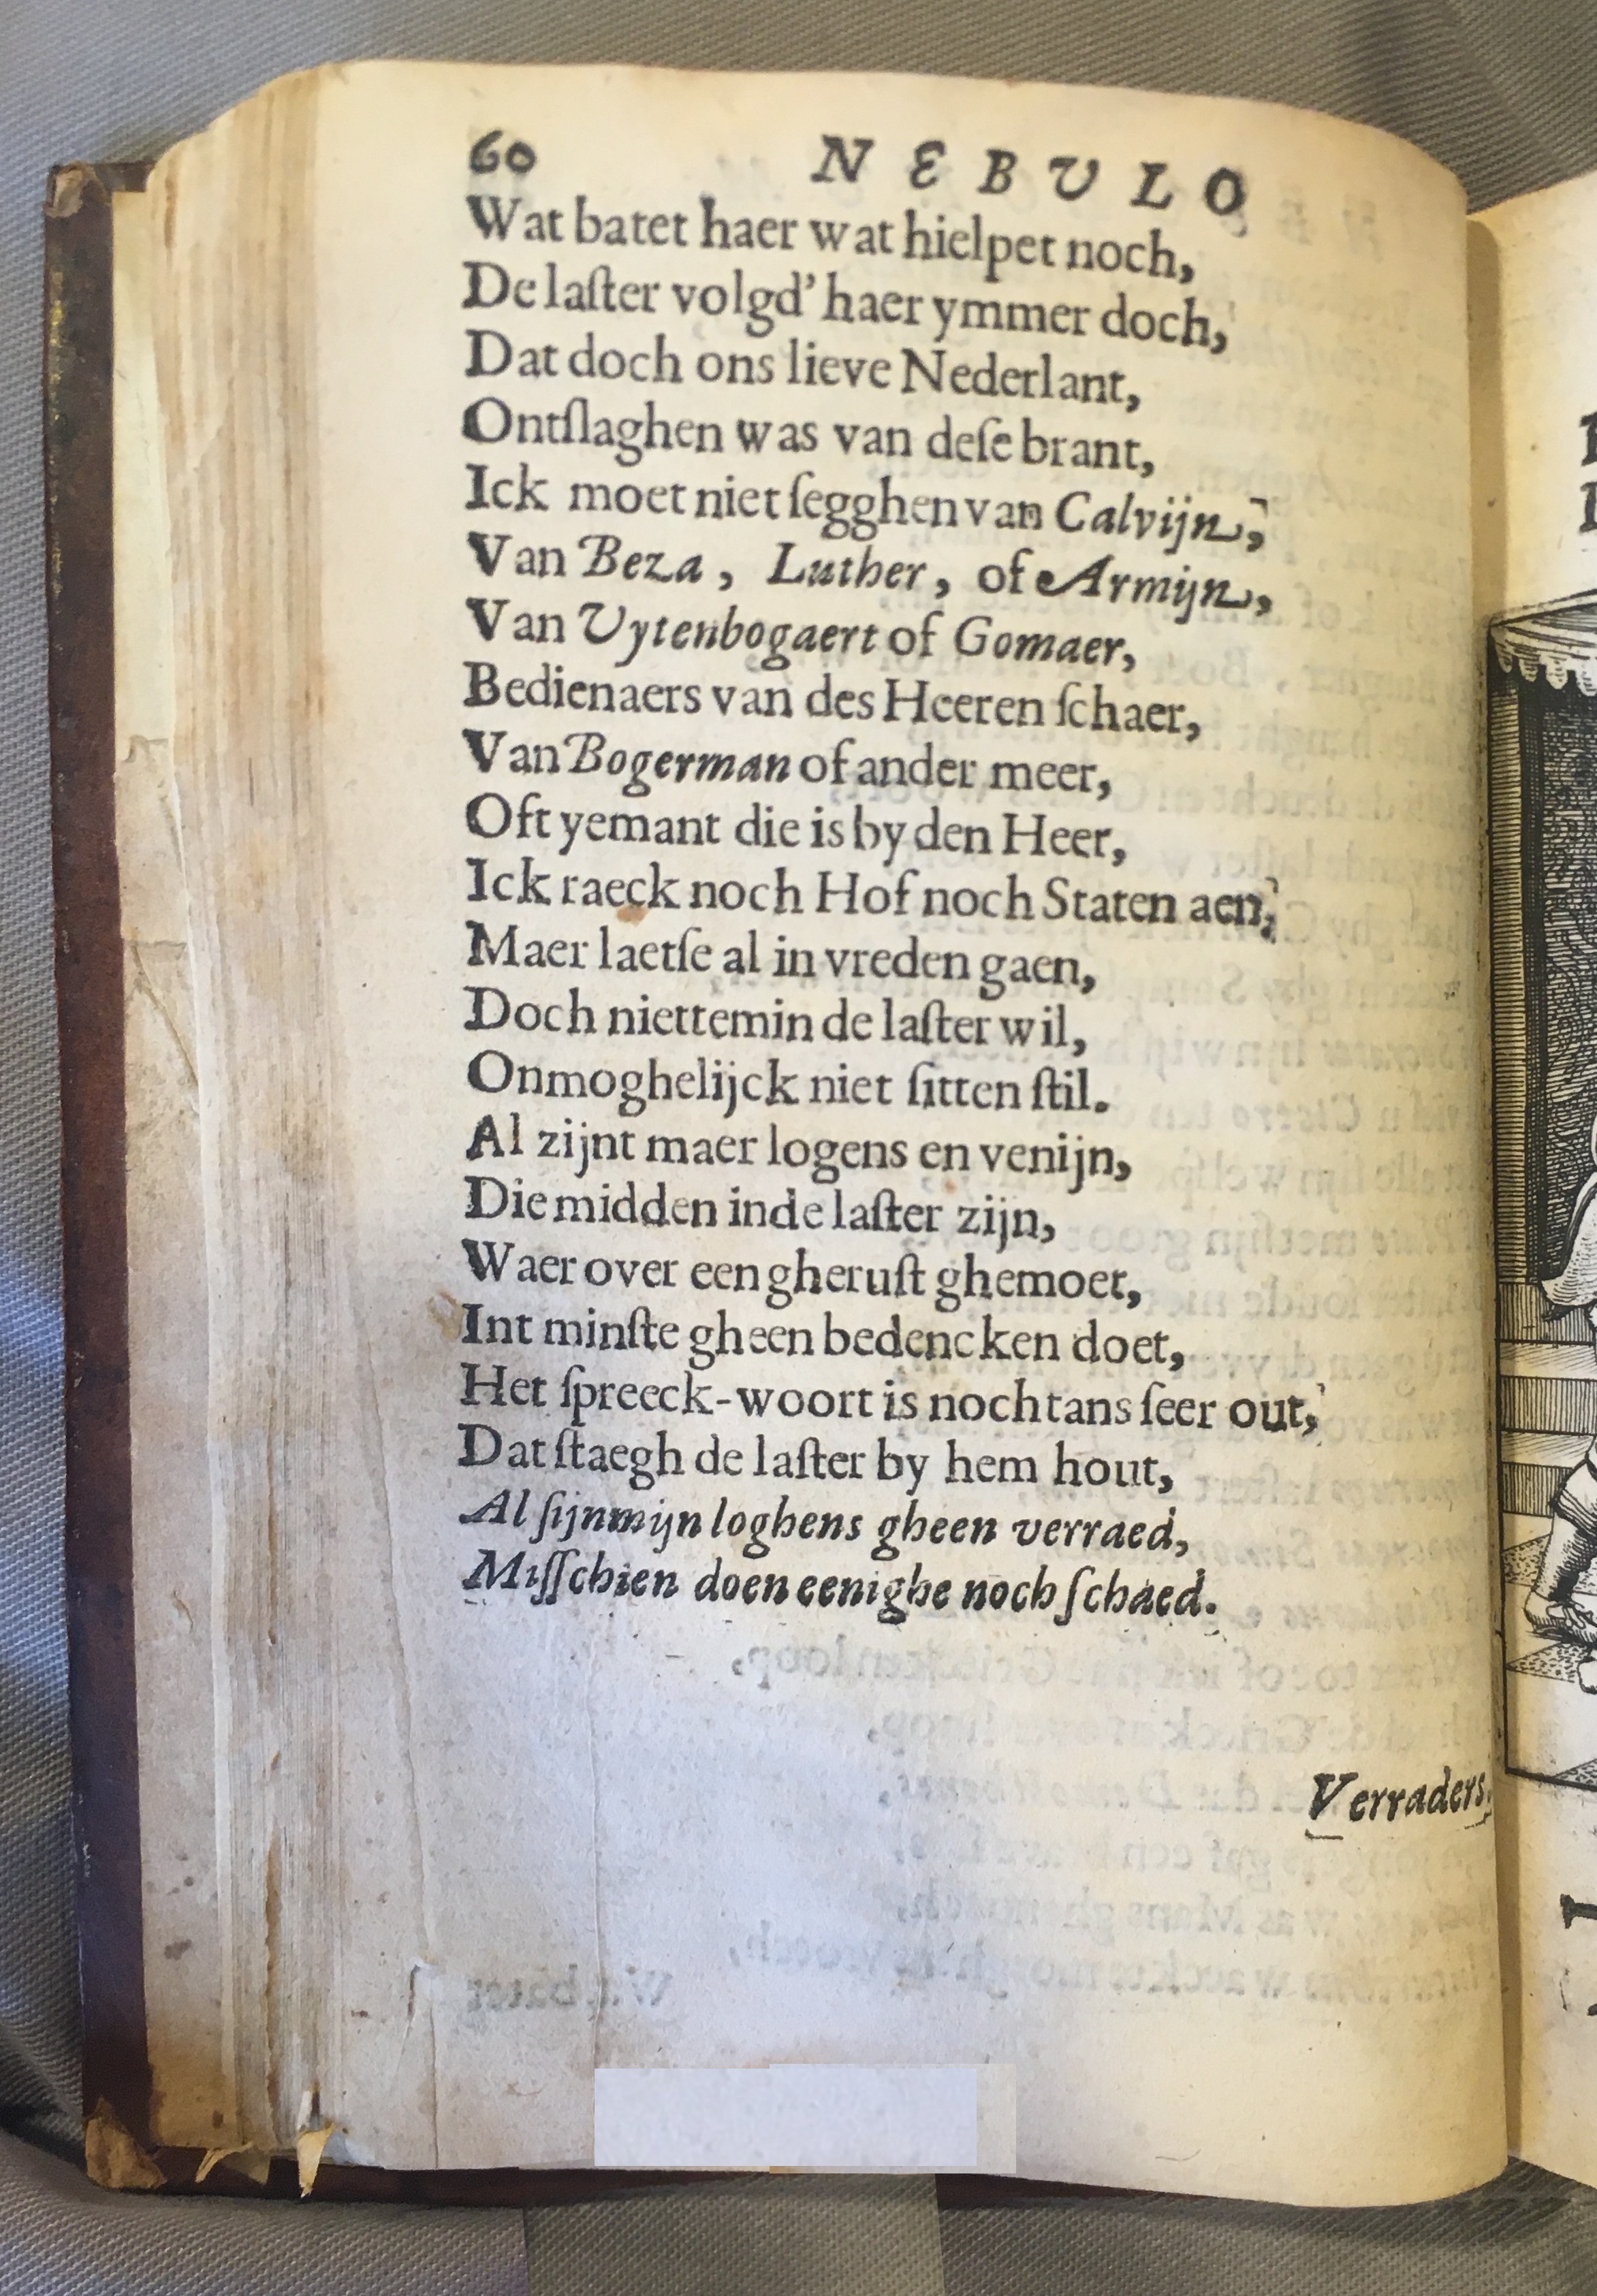 60 NEBULO
Wat batet haer wat hielpet noch,
De laſter volgd' haer ymmer doch,
Dat doch ons lieve Nederlant,
Ontſlaghen was van deſe brant,
Ick moet niet ſegghen van Calvijn,
Van Beza, Luther, of Armijn,
Van Vytenbogaert of Gomaer,
Bedienaers van des Heeren ſchaer,
Van Bogerman of ander meer,
Oft yemant die is by den Heer,
Ick raeck noch Hof noch Staten aen,
Maer laetſe al in vreden gaen,
Doch niettemin de laſter wil,
Onmoghelijck niet ſitten ſtil.
Al zijnt maer logens en venijn,
Die midden inde laſter zijn,
Waer over een gheruſt ghemoet,
Int minſte gheen bedencken doet,
Het ſpreeck-woort is nochtans ſeer out,
Dat ſtaegh de laſter by hem hout,
Al ſijn mijn loghens gheen verraed,
Miſſchien doen eenighe noch ſchaed.
Verraders.